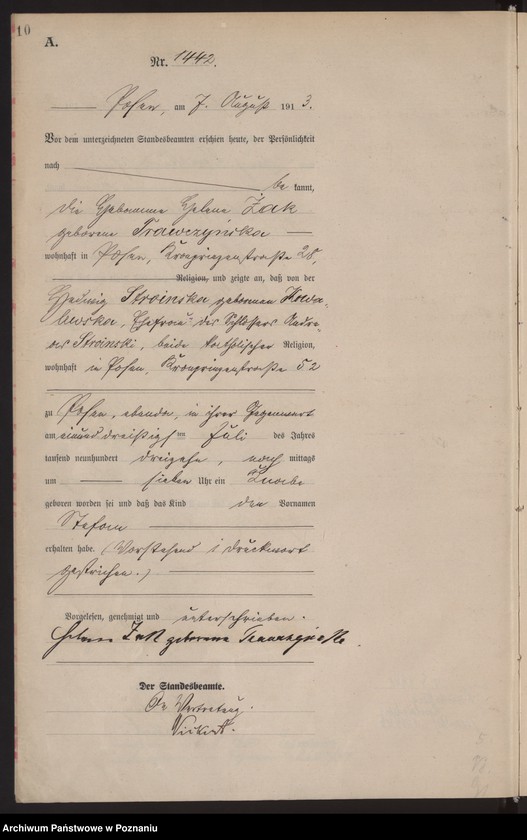 10
A.
Nr. 1442.
Posen, am 7. August 1913.
Vor dem unterzeichneten Standesbeamten erschien heute, der Persönlichkeit
nach
be kannt,
die Hebamme Helene Żak
geborene Trawczyńska
wohnhaft in Posen, Kronprinzenstraße 28,
Religion, und zeigte an, daß von der
Hedwig Stroinska geborenen Kowa-
lewska, Ehefrau des Schlossers Andre-
as Stroinski, beide katholischer Religion,
wohnhaft in Posen, Kronprinzenstraße 52
zu Posen, ebenda, in ihrer Gegenwart
am einunddreißigsten Juli des Jahres
tausend neunhundert dreizehn, nachmittags
um sieben Uhr ein Knabe
geboren worden sei und daß das Kind den Vornamen
Stefan
erhalten habe. (Vorstehend 1 Druckwort
gestrichen.)
Vorgelesen, genehmigt und unterschrieben.
Helene Żak geborene
Der Standesbeamte.
In Vertretung.
Archiwum Państwowe w Poznaniu